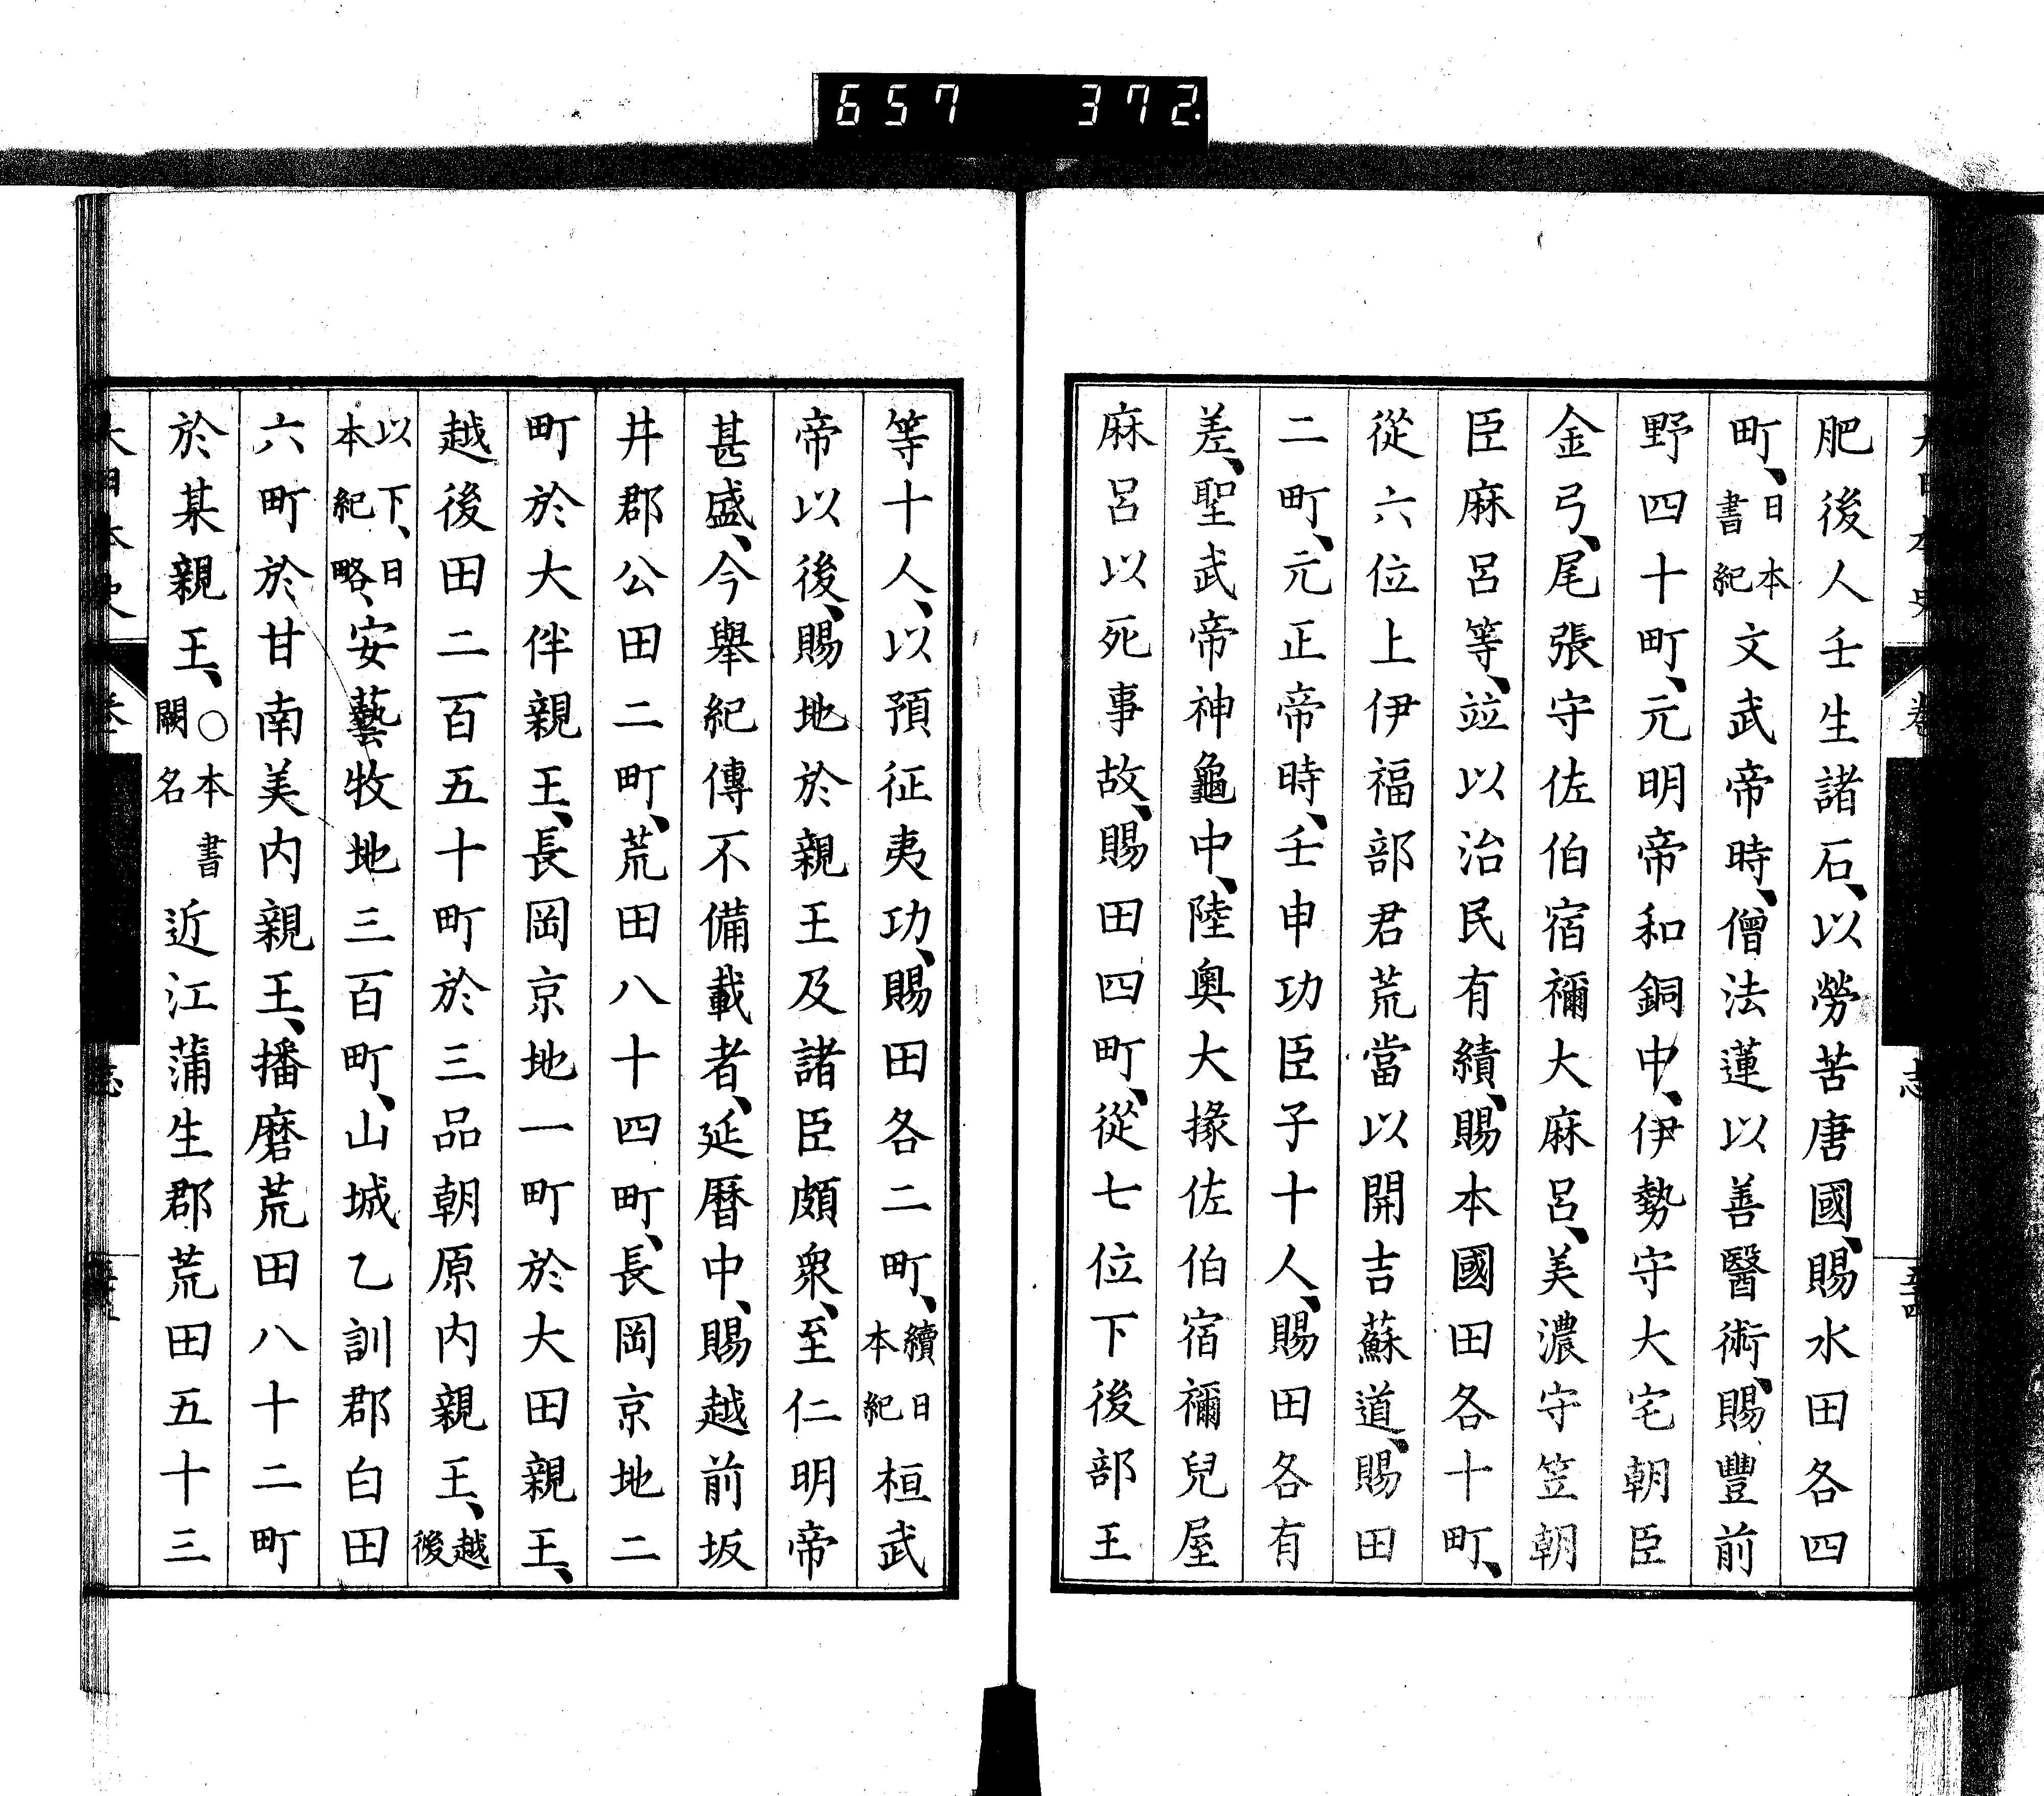 657 372
肥後人壬生諸石、以勞苦唐國、賜水田各四
町、日本書紀文武帝時、僧法蓮以善醫術、賜豐前
野四十町、元明帝和銅中、伊勢守大宅朝臣
金弓、尾張守佐伯宿禰大麻呂、美濃守笠朝
臣麻呂等、竝以治民有績、賜本國田各十町、
從六位上伊福部君荒當以開吉蘇道、賜田
二町、元正帝時、壬申功臣子十人、賜田各有
差、聖武帝神龜中、陸奧大掾佐伯宿禰兒屋
麻呂以死事故、賜田四町、從七位下後部王
等十人、以預征夷功、賜田各二町、續日本紀桓武
帝以後、賜地於親王及諸臣頗衆、至仁明帝
甚盛、今舉紀傳不備載者、延曆中、賜越前坂
井郡公田二町、荒田八十四町、長岡京地二
町於大伴親王、長岡京地一町於大田親王、
越後田二百五十町於三品朝原内親王、越後
以下、日本紀略、安藝牧地三百町、山城乙訓郡白田
六町於甘南美内親王、播磨荒田八十二町
於某親王、○本書闕名近江蒲生郡荒田五十三